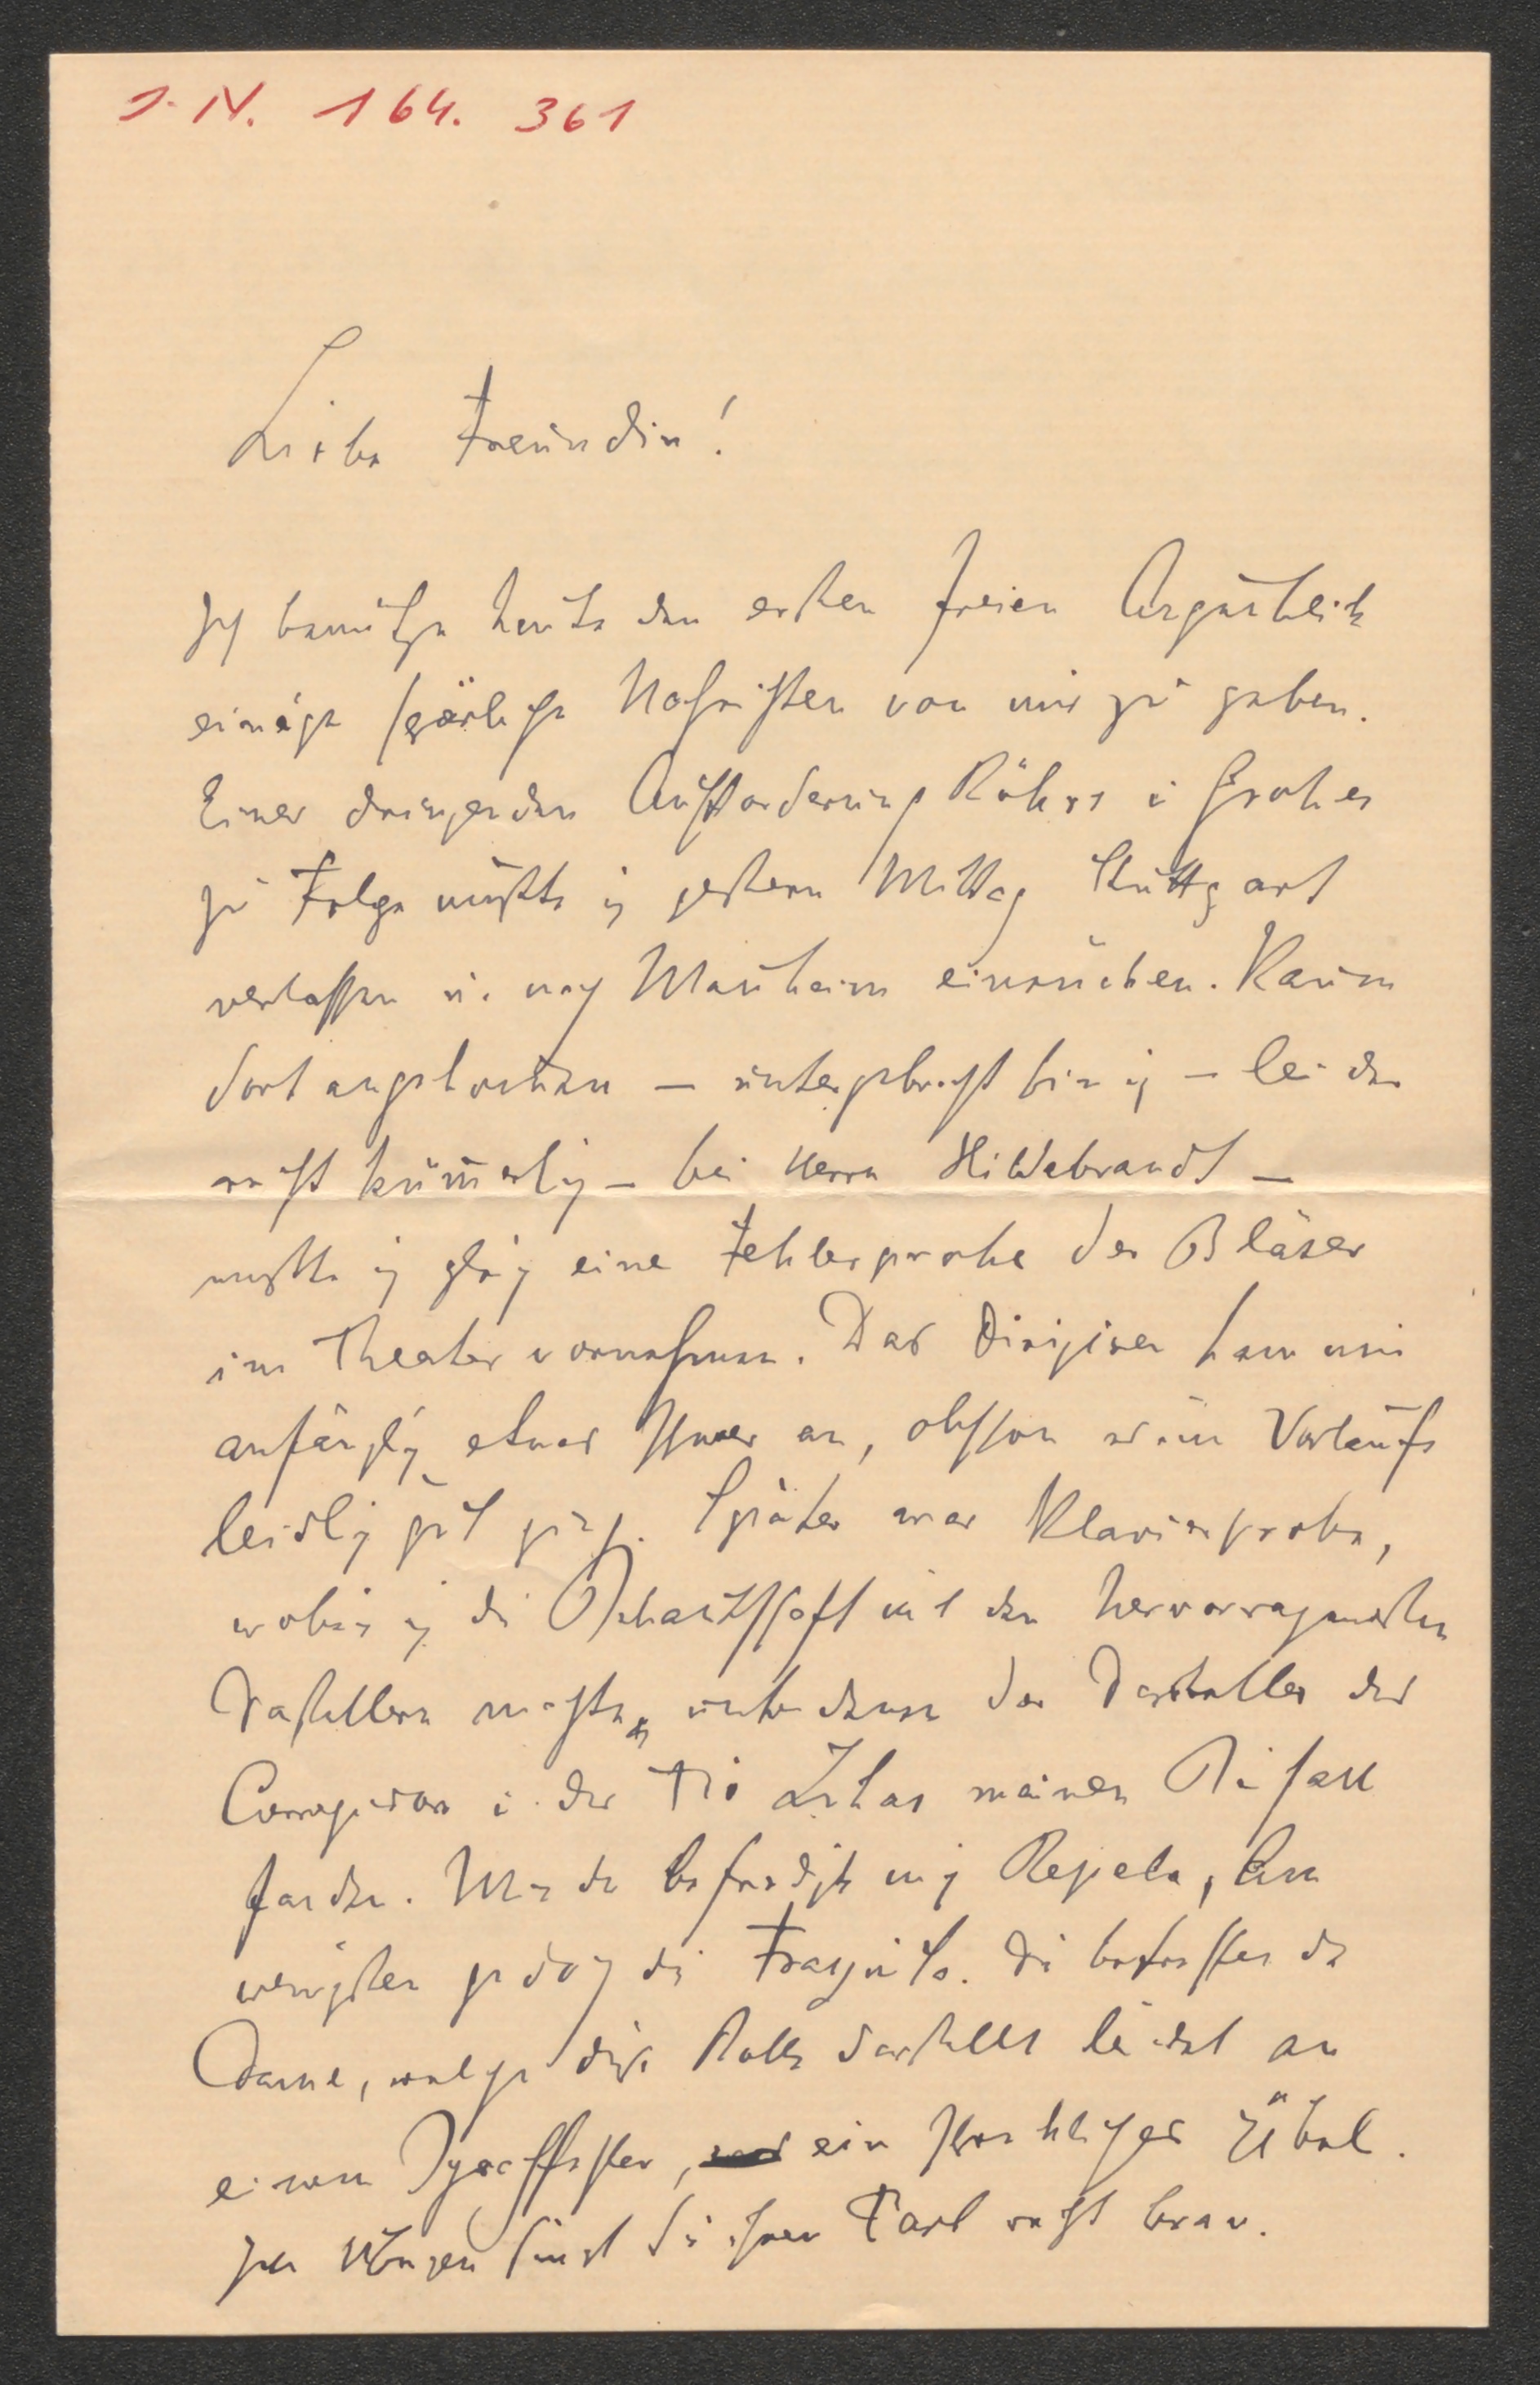 I. N. 164. 361
Liebe Freundin!
Ich benütze heute den ersten freien Augenblick
einige spärliche Nachrichten von mir zu geben.
Einer dringenden Aufforderung Röhrs u Grohes
zu Folge mußte ich gestern Mittag Stuttgart
verlassen u. nach Manheim einrücken. Kaum
dort angekommen – untergebracht bin ich – leider
recht kümmerlich – bei Herrn Hildebrandt –
mußte ich gleich eine Fehlerprobe der Bläser
im Theater vornehmen. Das Dirigiren kam mir
anfänglich etwas schwer an, obschon es im Verlaufe
leidlich gut ging. Später war Klavierprobe,
wobei ich die Bekantschaft mit den hervorragendsten
Darstellern machte, unter denen der Darsteller des
Corregidors u. der Tio Lukas meinen Beifall
fanden. Minder befriedigte mich Repela, am
wenigsten jedoch die Frasquita. Die betreffende
Dame, welche diese Rolle darstellt leidet an
einem Sprachfehler, ein schreckliches Übel.
Im Übrigen singt sie ihren Part recht brav.